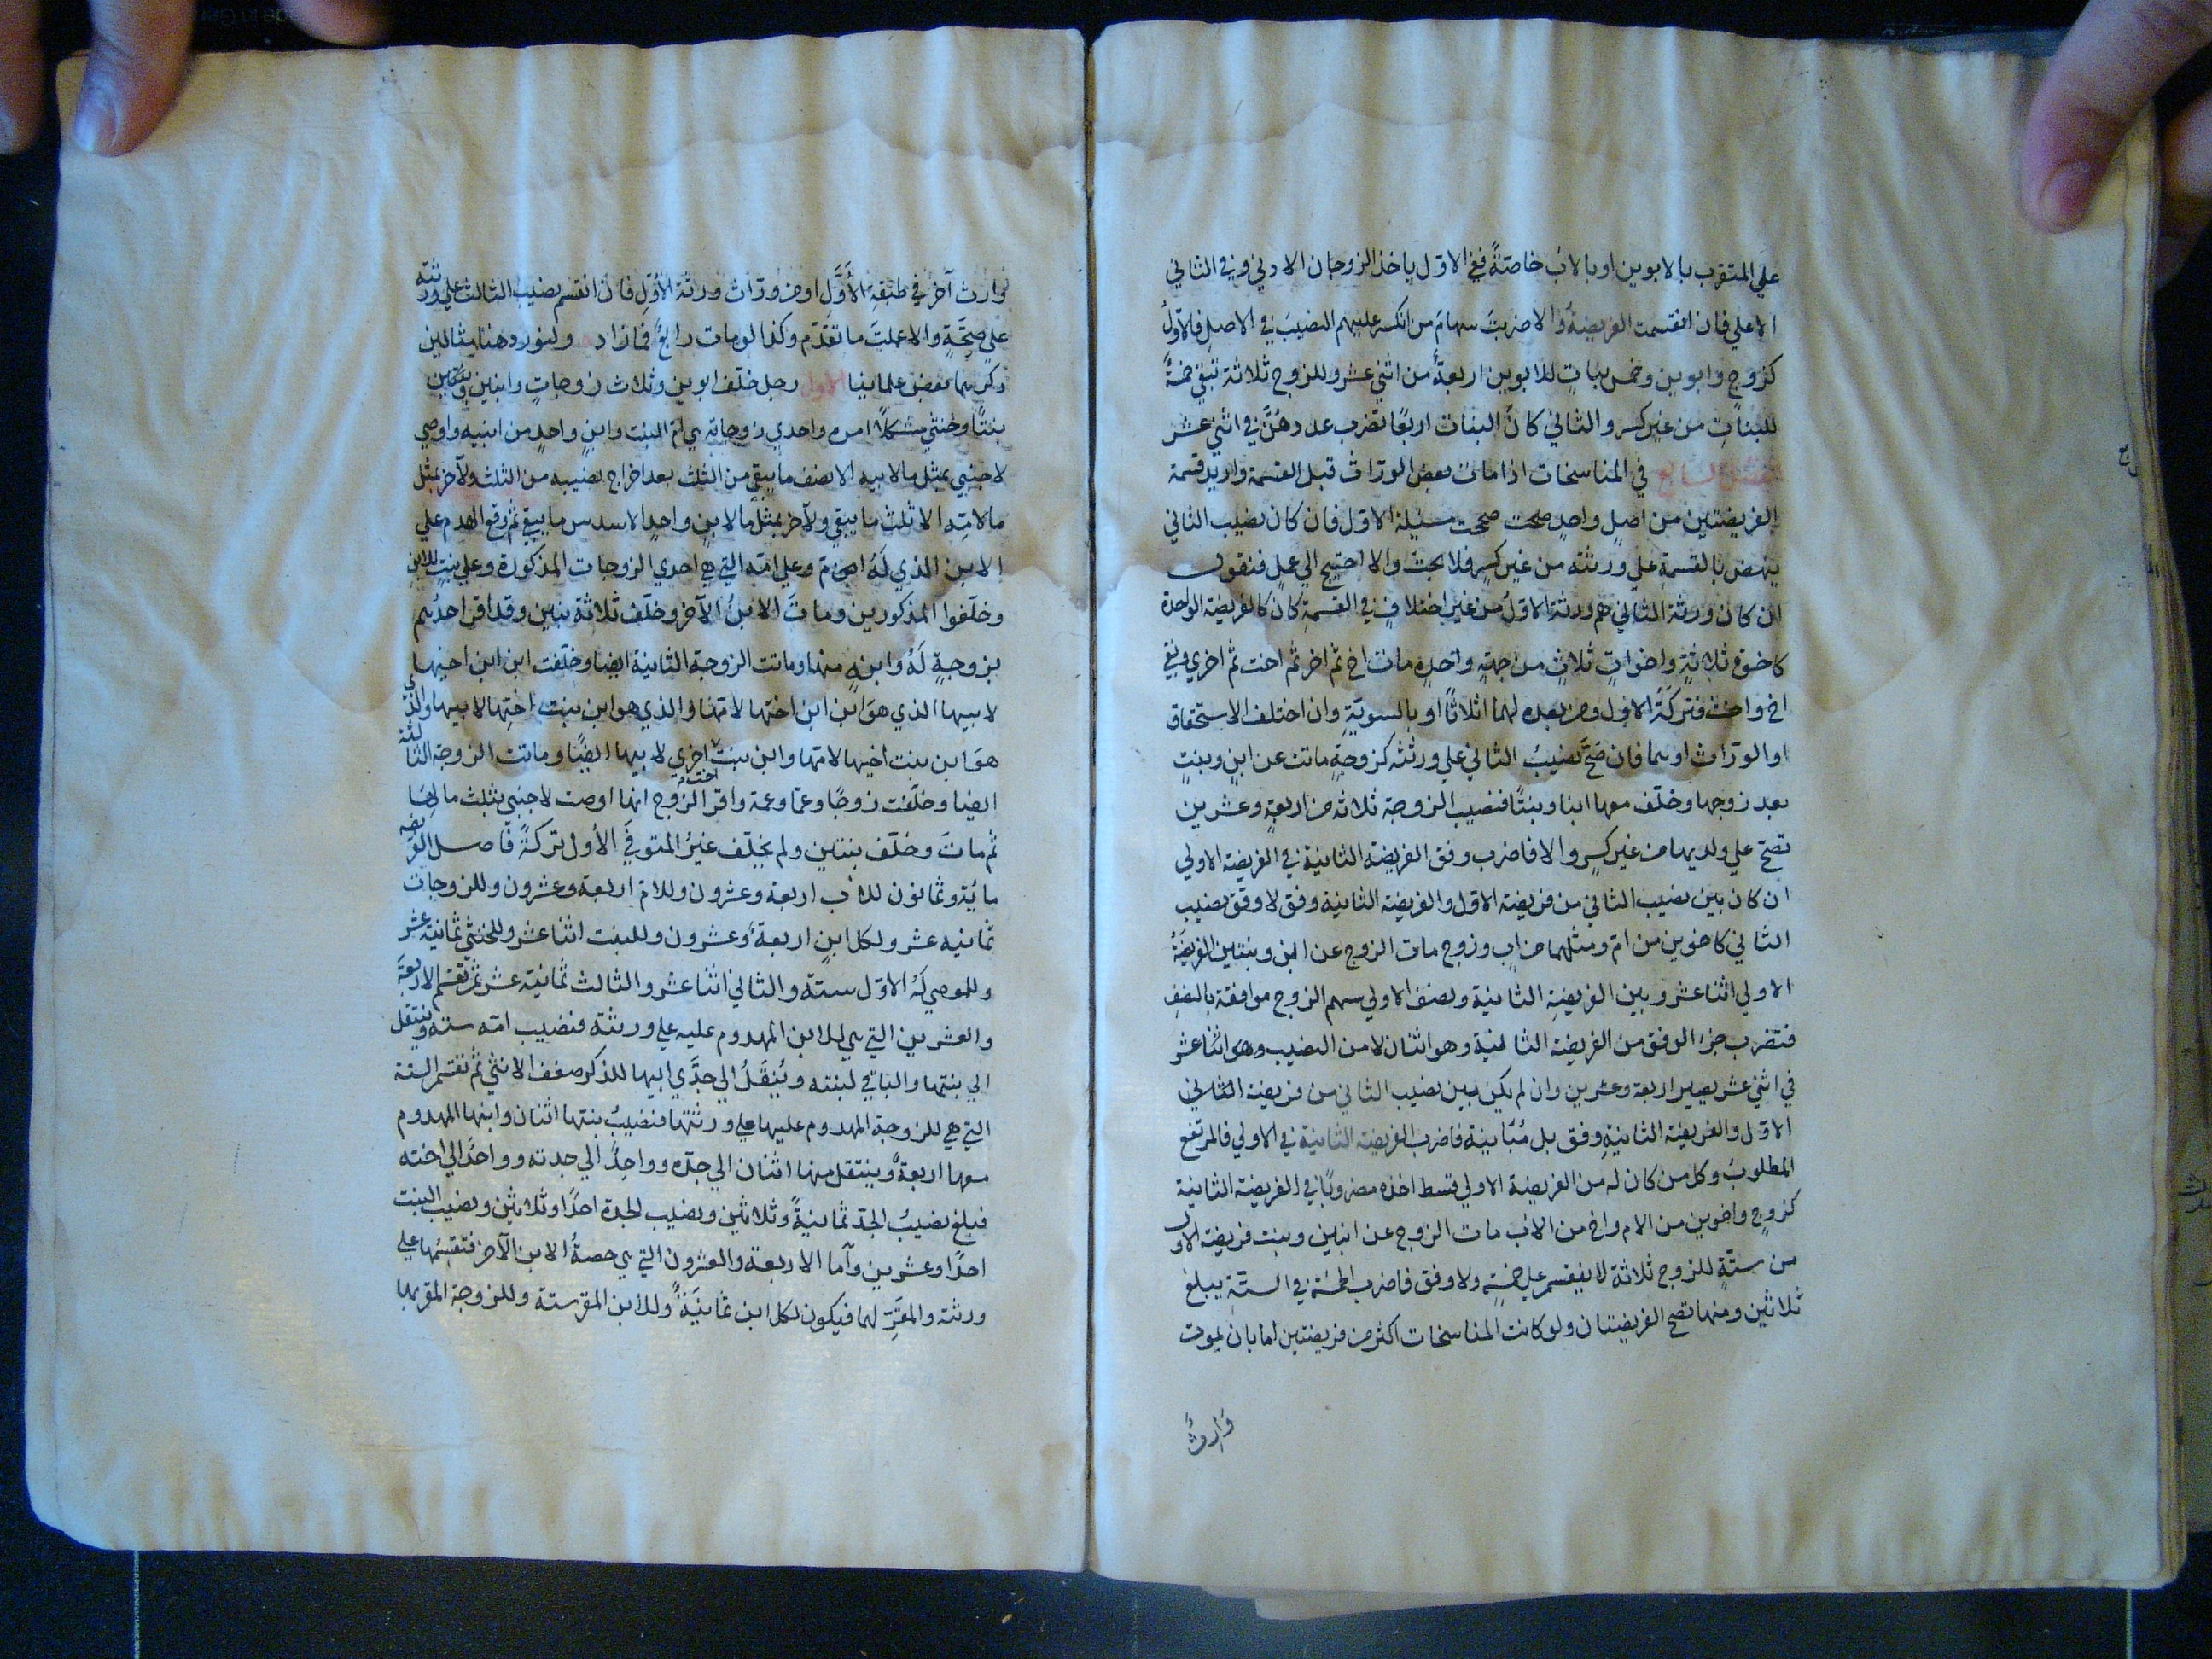 علي المتقرب بالابوين او بالاب خاصتةً ففي الاوّل ياخذ الزوجان الادني وفي الثاني
الاعلي فان انقسمت الفريضةُ والا ضربتَ سهامَ من انكسر عليهم النصيبَ في الاصلِ فالاوّلُ
كزوجٍ وابوين وخمس بناتٍ للابوين اربعةٌ من اثني عشر وللزوج ثلاثة تبقي خمسةٌ
للبناتِ من غير كسر والثاني كانَ البنات اربعًا تضرب عددهُنَّ في اثني عشر
الفصل السابع في المناسخات اذا مات بعض الورّاث قبل القسمة واريد قسمة
الفريضتين من اصلٍ واحدٍ صحت مسئلة الاوّل فان كان نصيب الثاني
ينهض بالقسمةِ علي ورثته من غير كسرٍ فلا بحث والا احتيج الي عملٍ فنقول
ان كان ورثة الثاني هم ورثة الاوّلُ من غير اختلافٍ في القسمةِ كان كالفريضة الواحدة
كاخوةٍ ثلاثةٍ واخواتٍ ثلاثٍ من جهةٍ واحدهٍ مات اخ ثم اخر ثم اخت ثم اخري وبقي
اخ واخت فتركَةُ الاوّل ومن بعده لهما اثلاثًا او بالسويّةِ وان اختلف الاستحقاق
او الورّاث او هما فان صَحَّ نصيبُ الثاني علي ورثته كزوجةٍ ماتت عن ابنٍ وبنتٍ
بعد زوجها وخلّف معها ابنا وبنتًا فنصيب الزوجة ثلاثة من اربعةٍ وعشرين
تصحّ علي ولديها من غير كسرٍ والا فاضرب وفق الفريضة الثانية في الفريضة الاولي
ان كان بين نصيب الثاني من فريضة الاوّل والفريضة الثانية وفق لا وفق نصيب
الثاني كاخوين من امّ ومثلهما من ابٍ وزوج مات الزوج عن ابن وبنتين الفريضَةُ
الاولي اثنا عشر وبين الفريضةِ الثانية ونصف الاولي سهم الزوج موافقة بالنصفِ
فتضرب جزء الوفق من الفريضة الثانية وهو اثنان لا من النصيب وهو اثنا عشر
في اثني عشر يصير اربعة وعشرين وان لم يكن بين نصيب الثاني من فريضة
الاوّل والفريضة الثانيةِ وفق بل مُبَاينة فاضرب الفريضة الثانية في الاولي فالمرتفع
المطلوبُ وكل من كان له من الفريضة الاولي قسط اخذه مضروبًا في الفريضة الثانية
كزوجٍ واخوين من الام واخ من الاب مات الزوج عن ابنين وبنت فريضة الاول
من ستّةٍ للزوج ثلاثة لا ينقسم علي خمسةٍ ولا وفق فاضرب الخمسة في الستّةِ يبلغ
ثلاثين ومنها تصح الفريضتان ولو كانت المناسخات اكثر من فريضتين اما بان يموت
وَارِثٌ
وارث آخر في طبقةِ الأَوَّلِ او من ورّاث ورثة الاوّلِ فان انقسم نصيب الثالث علي ورثته
علي صِحَّةٍ والا عملتَ ما تقدّم وكذا لو مات رابعٌ فما زاد ولنورد هنا مثالين
ذكرهما بعض علمائنا الاول رجل خلّف ابوين وثلاث زوجاتٍ وابنين
بنتًا وخنثي مشكلًا امه واحدي زوجاته هي امّ البنت وابنٍ واحدٍ من ابنيه واوصي
لاجنبي بمثل ما لابيه الا نصف ما يبقي من الثلث بعد اخراج نصيبه من الثلث ولآخر بمثل
ما لامّه الا ثلث ما يبقي ولآخر بمثل ما لابن واحدٍ الا سدس ما يبقي ثم وقع الهدم علي
الابن الذي لَهُ امّ وعلي امّه التي هي احدي الزوجات المذكورة وعلي بنتٍ للابن
وخلّفوا المذكورين وماتَ الابنُ الآخر وخلّف ثلاثة بنين وقد اقر احدُهم
بزوجةٍ لَهُ وابنهٍ منها وماتت الزوجة الثانية ايضا وخلّفت ابن ابن اخيها
لابيها الذي هو ابن ابن اختها لامّها والذي هو ابن بنت اختها لابيها والذي
هو ابن بنت اخيها لامها وابن بنت اخت اخري لابيها ايضًا وماتت الزوجة الثالثة
ايضا وخلّفت زوجًا وعمّا وعمة واقر الزوج انها اوصت لاجنبي بثلث مالها
ثم مات وخلّف بنتين ولم يخلّف غيرُ المتوفي الأول تركةً فاصل الفريضة
مائية وثمانون للاب اربعة وعشرون وللام اربعة وعشرون وللزوجات
ثمانيه عشر ولكل ابنٍ اربعةٌ وعشرون وللبنت اثنا عشر وللخنثي ثمانية عشر
وللموصي لَهُ الاوّل ستة والثاني اثنا عشر والثالث ثمانية عشر ثم تقسم الاربعَة
والعشرين التي هي للابن المهدوم عليه علي ورثته فنصيب امّه سته وينتقل
الي بنتها والباقي لبنته ويُنقَلُ الي جدَّي ابيها للذكر ضعف الانثي ثم تقسم الستة
التي هي للزوجة المهدوم عليها علي ورثتها فنصيبُ بنتها اثنان وابنها المهدوم
معها اربعةٌ وينتقل منها اثنان الي جدّه وواحِدٌ الي جدته وواحدٌ الي اخته
فبلغ نصيبُ الجدّ ثمانيةً وثلاثين ونصيب الجدة احدًا وثلاثين ونصيب البنت
احدًا وعشرين وآما الاربعة والعشرون التي هي حصةُ الابن الآخر فتقسمُها علي
ورثته والمقَرِّ لهما فيكون لكل ابن ثمانيَةٌ وللابن المقر ستة وللزوجة المقر بها